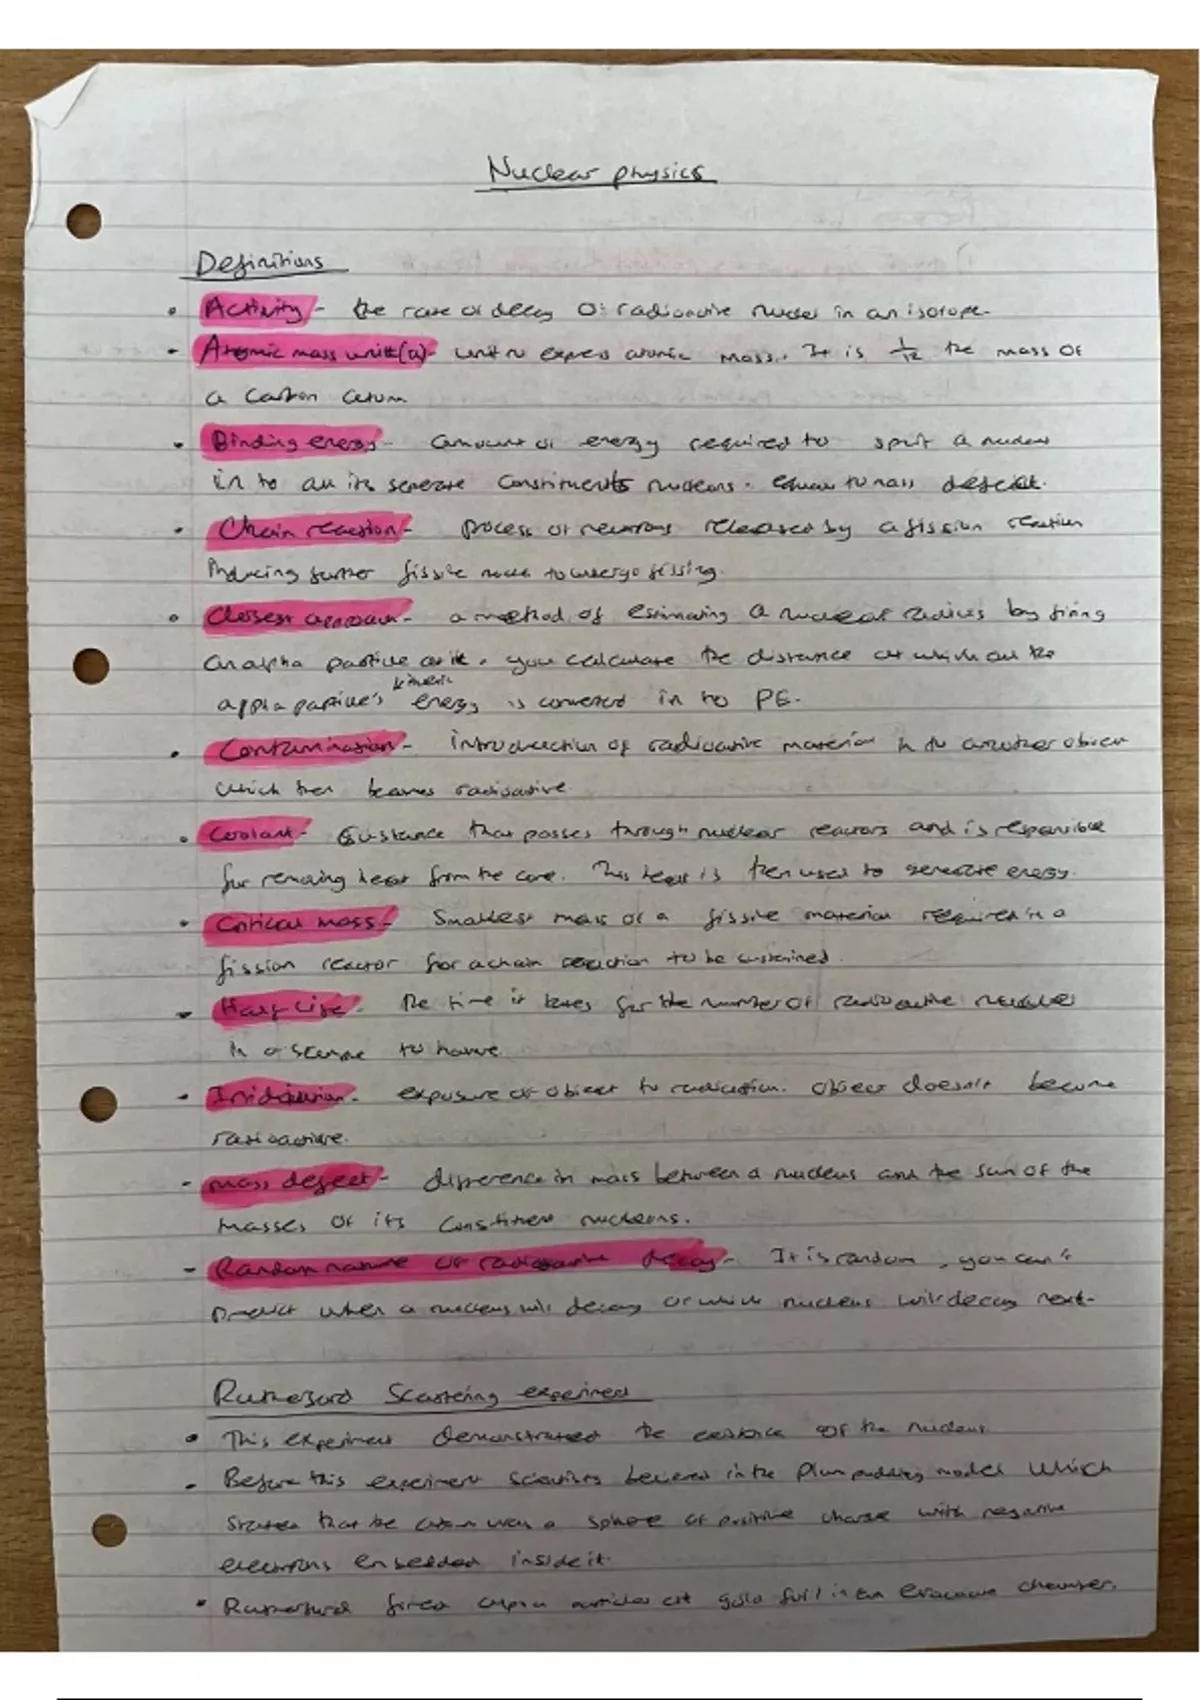 Nuclear physics
Definitions
Activity - the rate of decay of radioactive nuclei in an isotope.
Atomic mass unit (u) - unit to express atomic mass. It is 1/12 the mass of
a carbon atom
Binding energy - amount of energy required to split a nucleus
in to all its seperate constituents nucleons. equal to mass defect.
Chain reaction - process of neutrons released by a fission reaction
inducing further fissile nuclei to undergo fissing.
Closest approach - a method of estimating a nuclear radius by firing
an alpha particle at it. you calculate the distance at which all the
alpha particle's kinetic energy is converted in to PE.
Contamination - introduction of radioactive material in to another object
which then becomes radioactive.
Coolant - Substance that passes through nuclear reactors and is responsible
for removing heat from the core. This heat is then used to generate energy.
Critical mass - Smallest mass of a fissile material required in a
fission reactor for a chain reaction to be sustained.
Half Life - the time it takes for the number of radioactive
in a to halve.
Irridiation - exposure of object to radiation. object doesn't become
radioactive.
mass defect - difference in mass between a nucleus and the sum of the
masses of its constituent nucleons.
Random nature of radioactive decay - It is random, you can't
predict when a nucleus will decay or which nucleus will decay next.
Rutherford Scattering experiment
This experiment demonstrated the existence of the nucleus.
Before this experiment scientists believed in the Plum pudding model which
stated that the atom was a sphere of positive charge with negative
electrons embedded inside it.
Rutherford fired alpha particles at gold foil in an evacuated chamber.